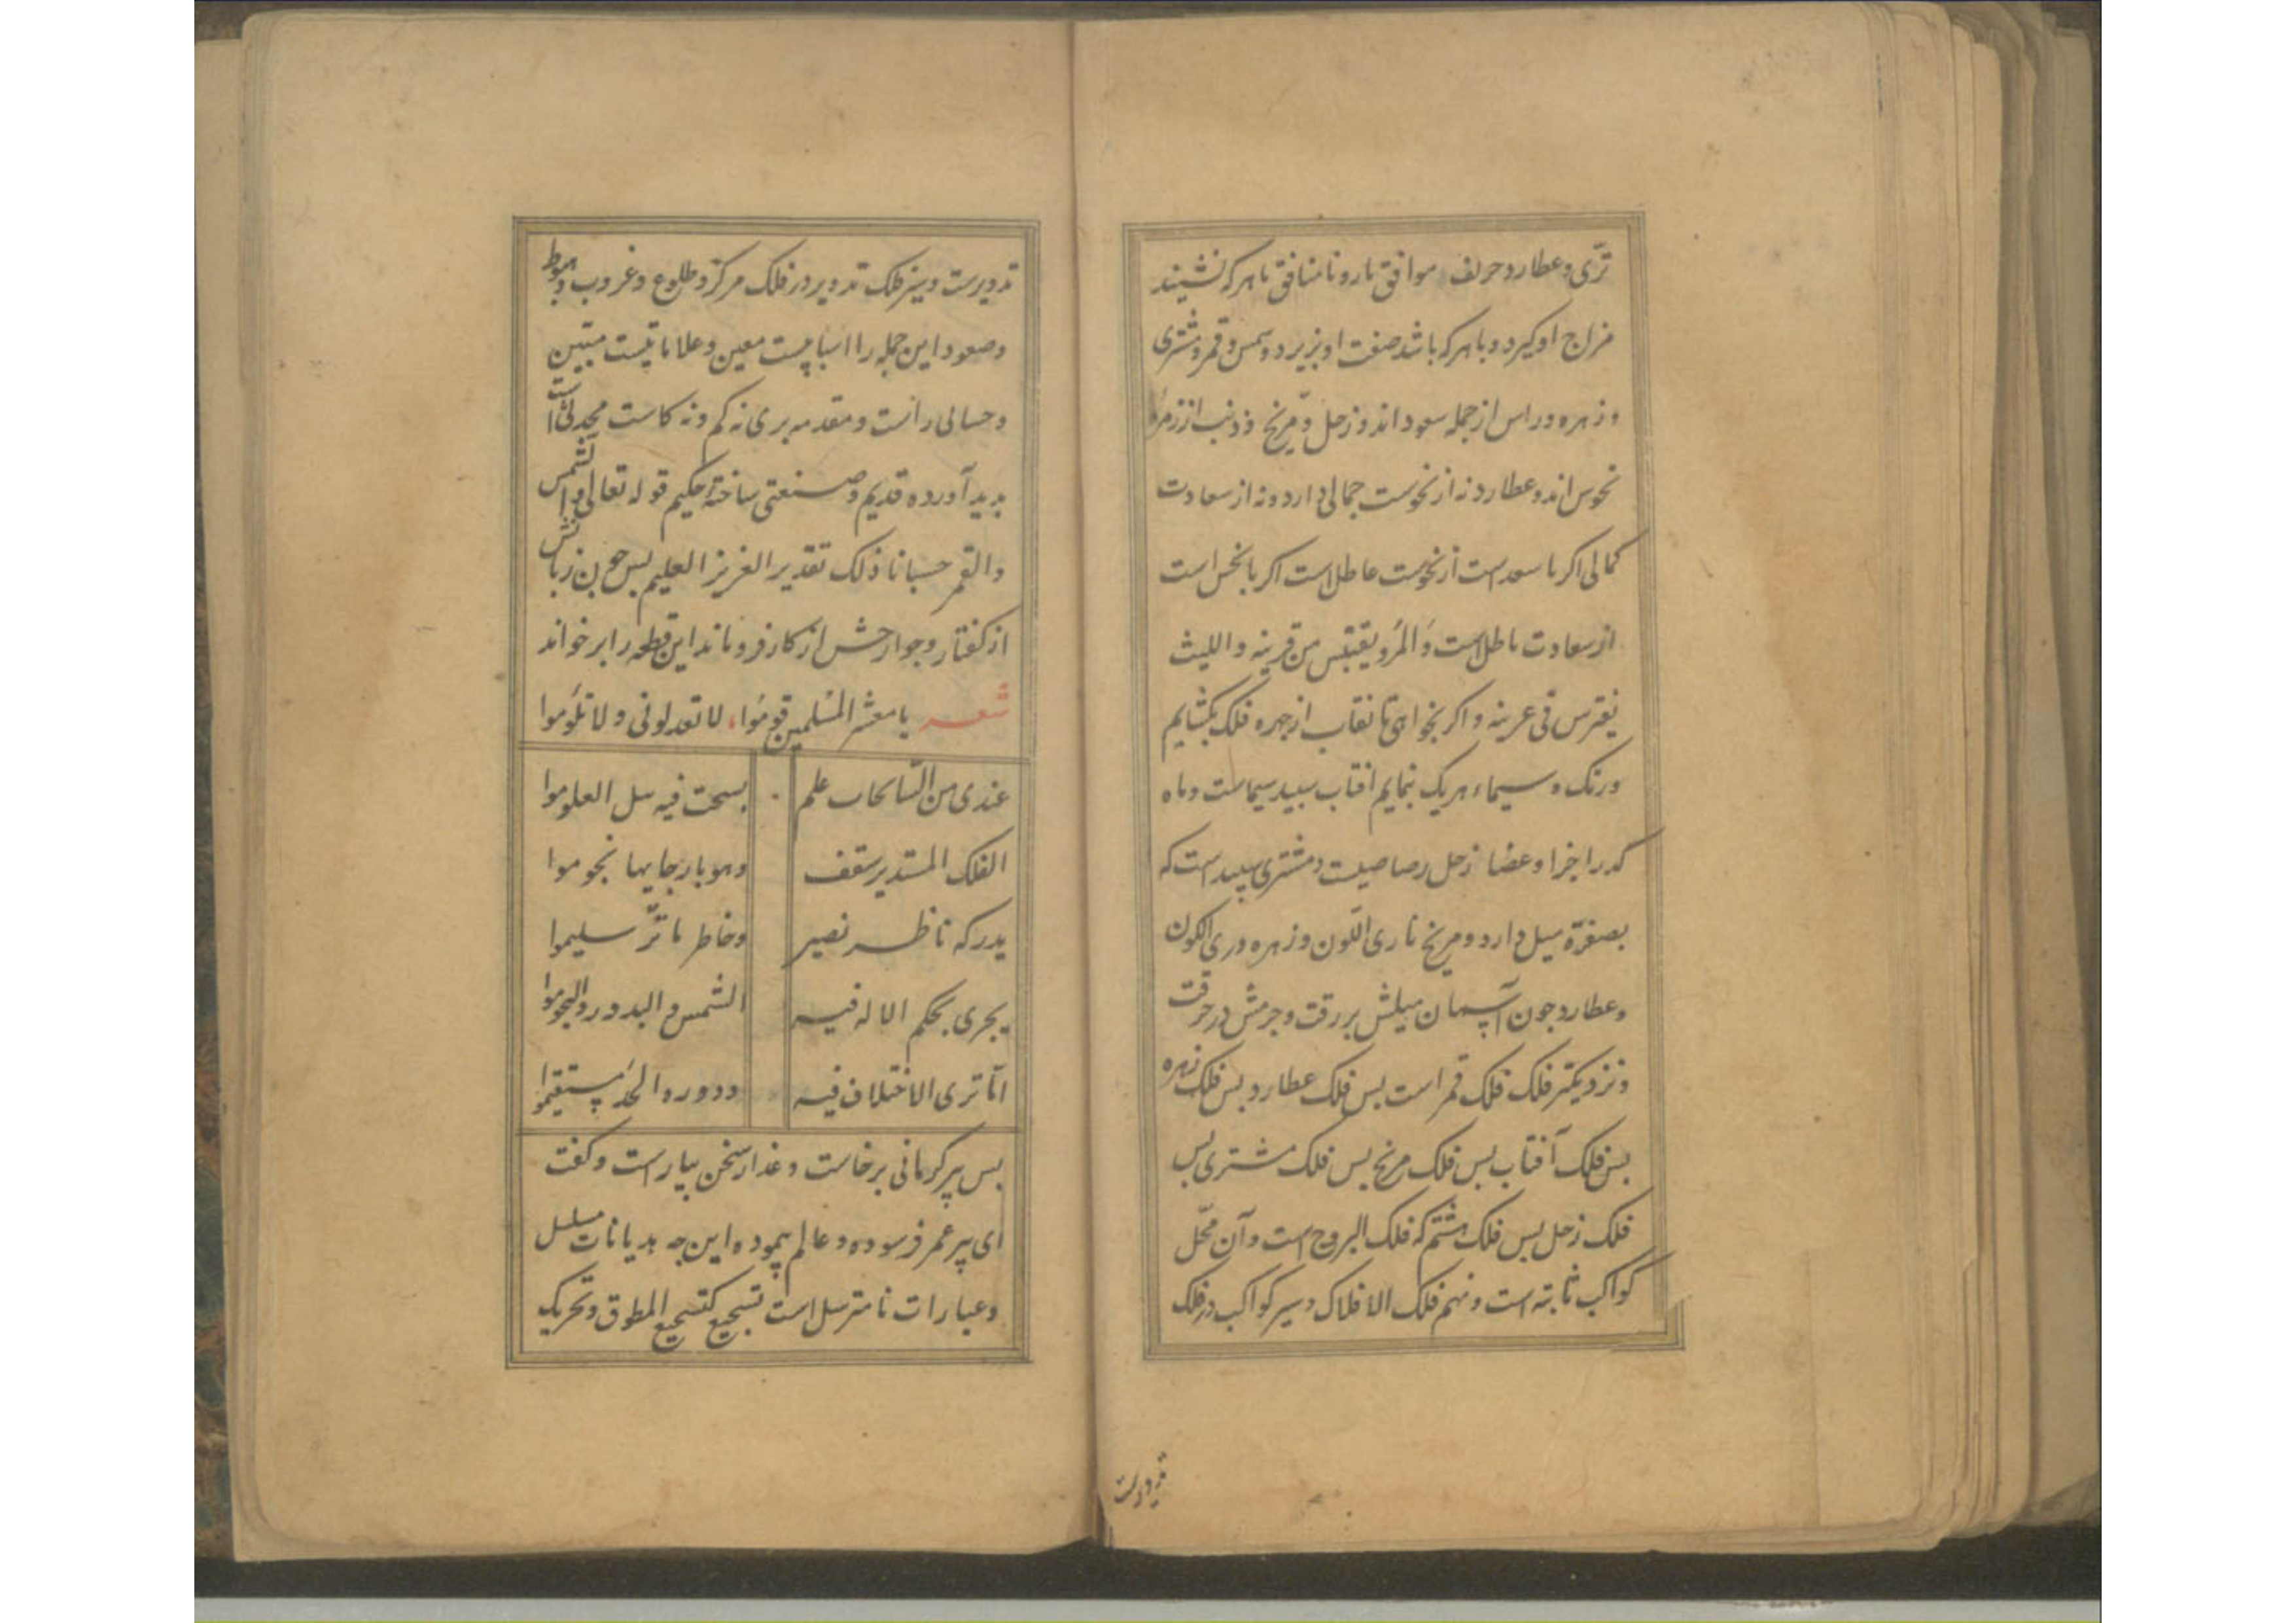 ترّی و عطارد حریف موافق نارو نامنافق باهر که نشیند
مزاج او کیرد و باهر که باشد صفت او بزیرد و شمس و قمر و مشتری
و زهره و راس از جمله سعود اند و زحل و مریخ و ذنب از زمرهٔ
نحوس اند و عطارد نه از نحوست جمالی دارد و نه از سعادت
کمالی اکر با سعد است از نحوست عاطل است اکر با نحس است
از سعادت باطل است وَالمَرْو یقتبس من قرینه واللیث
یفترس فی عرینه و اکر بخواهی تا نقاب از جهره فلک بکشایم
و رنک و سیماء هریک بنمایم افتاب سبید سیماست و ماه
کدر اجزا و عضا زحل رصاصیست و مشتری سپید است که
بصفرة میل دارد و مریخ ناری اللّون و زهره دری الکون
و عطارد جون آسمان میلش برزقت و جرمش در حرقت
و نزدیکتر فلک فلک قمر است بس فلک عطارد بس فلک زهره
بس فلک آفتاب بس فلک مریخ بس فلک مشتری بس
فلک زحل بس فلک هشتم که فلک البروج است و آن محّل
کواکب ثابته است و نهم فلک الافلاک و سیر کواکب در فلک
تدویرست
تدویرست و سیر فلک تدویر در فلک مرکز و طلوع و غروب و هبوط
و صعود این جمله را اسبابیست معین و علاماتیست مبّین
و حسابی راست و مقدمه بری نه کم و نه کاست محدثی است
بدید آورده قدیم و صنعتی ساختهٔ حکیم قوله تعالی والشّمس
والقمر حسبانا ذلک تقدیر العزیز العلیم بس جون زبانش
از کفتار و جوارحش از کار فرو ماند این قطعه را بر خواند
شعر یا معشر المُسلمین قومُوا، لا تعدلونی و لا تلُومُوا
عندی من السّابحات علم بسحت فیه سل العلوموا
الفلک المستدیر سقف وهو بارجایها نجوموا
یدرکه ناظر نصیر وخاطر ناتّر سلیموا
یجری بحکم الاله فیه الشمس و البدور و النجوموا
امّا تری الاختلاف فیه ودوره الحدَ مستقیموا
بس پیر کرمانی برخاست و عذار سخن بیاراست و کفت
ای پیر عمر فرسوده و عالم پیموده این جه هدیانات مسلسل
و عبارات نامترسل است تسجیع کتسجیع المطوق و تحریک